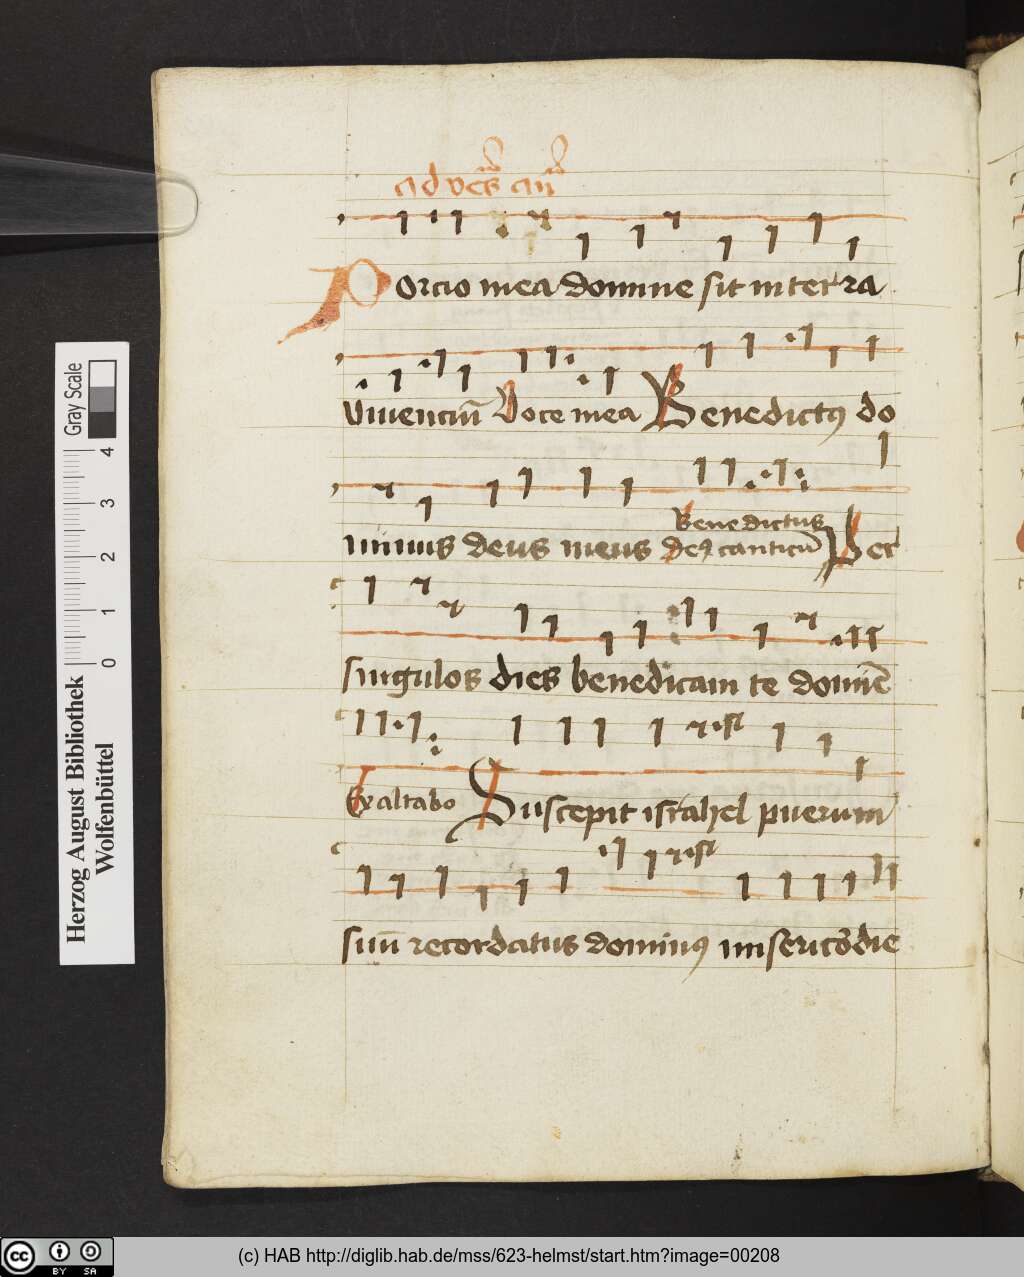 ad vesp̄ as añ
Porcio mea domine sit in terra
viuenciū Voce mea Benedictꝯ do
minus deus meus
Benedictus
deꝯ canticū Per
singulos dies benedicam te domīe
Exaltabo Suscepit israhel puerum
suū recordatus dominꝯ misericōdie
Herzog August Bibliothek
Wolfenbüttel
0 1 2 3 4
Gray Scale
cc BY SA
(c) HAB http://diglib.hab.de/mss/623-helmst/start.htm?image=00208